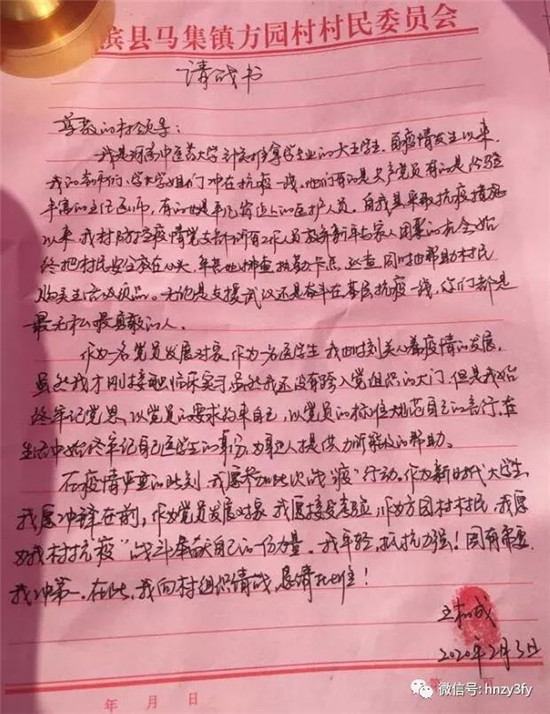 滨县马集镇方园村村民委员会
请战书
尊敬的村领导：
我是河南中医药大学针灸推拿学专业的大五学生，自疫情发生以来，
我的老师们、学长学姐们冲在抗疫一线，他们有的是共产党员有的是经验
丰富的主任医师，有的也是平凡岗位上的医护人员。自我县采取抗疫措施
以来，我村防控疫情党支部所有工作人员放弃新年与家人团聚的机会始
终把村民安危放在心头，辛苦地排查，执勤卡点，巡查，同时也帮助村民
购买生活必须品。无论是支援武汉还是奋斗在基层抗疫一线，你们都是
最无私最勇敢的人。
作为一名党员发展对象，作为一名医学生我时时刻刻关心着疫情的发展，
虽然我才刚接触临床实习虽然我还没有跨入党组织的大门，但是我始
终牢记党恩，以党员的要求约束自己，以党员的标准规范自己的言行，在
生活中始终牢记自己医学生的身份，为身边人提供力所能及的帮助。
在疫情严重的此刻，我愿参加此次战"疫"行动。作为新时代大学生，
我愿冲锋在前，作为党员发展对象，我愿接受考验，作为方园村村民，我愿
为我村抗"疫"战斗奉献自己的一份力量。我年轻，抵抗力强！国有需要
我冲第一。在此，我向村组织请战，恳请批准！
2020年2月3日
年 月 日
第 页
微信号: hnzy3fy